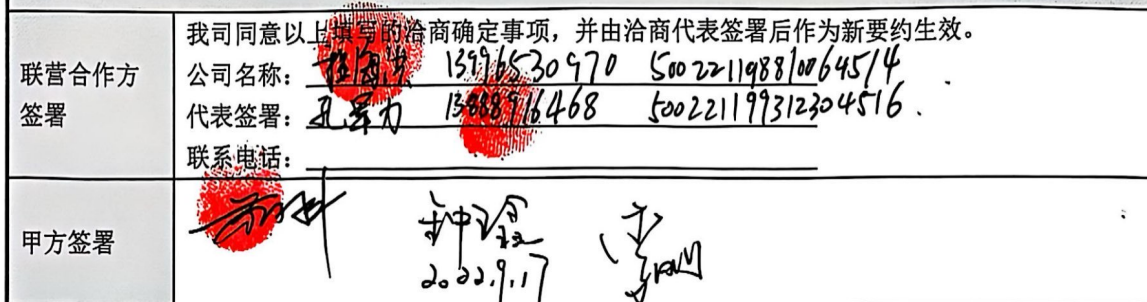 我司同意以上填写的洽商确定事项，并由洽商代表签署后作为新要约生效。
联营合作方
签署
公司名称： 13996530970 500221198810064514
代表签署：孔军力 13888916468 500221199312304516.
联系电话：
甲方签署
2022.9.17